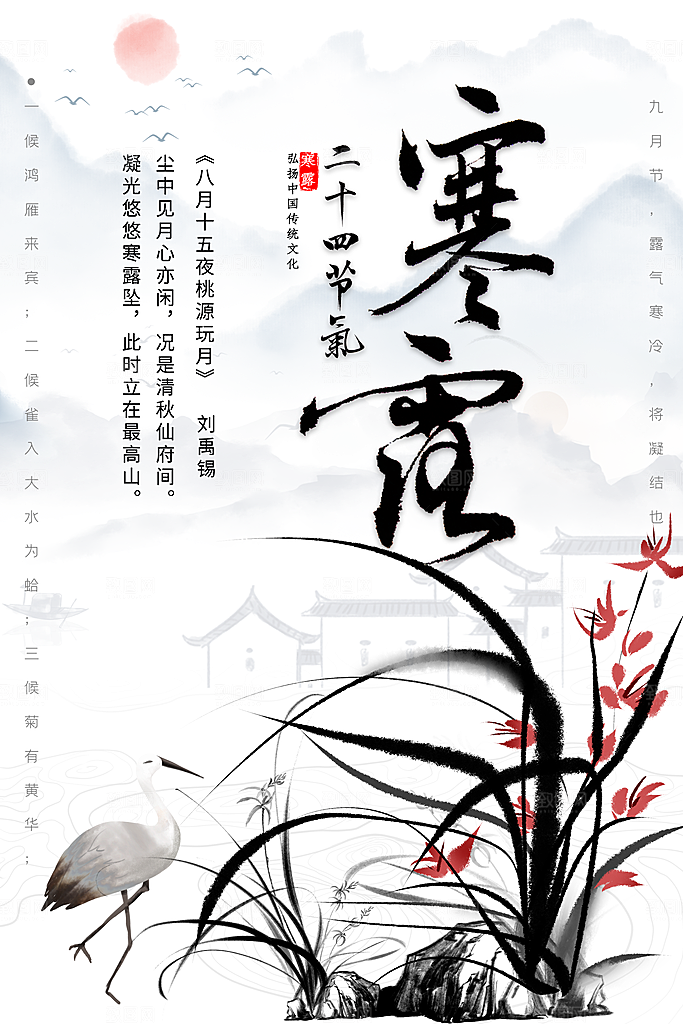 九月节，露气寒冷，将凝结也
寒露
二十四节氣
寒露
弘扬中国传统文化
《八月十五夜桃源玩月》 刘禹锡
尘中见月心亦闲，况是清秋仙府间。
凝光悠悠寒露坠，此时立在最高山。
一候鸿雁来宾；二候雀入大水为蛤；三候菊有黄华；